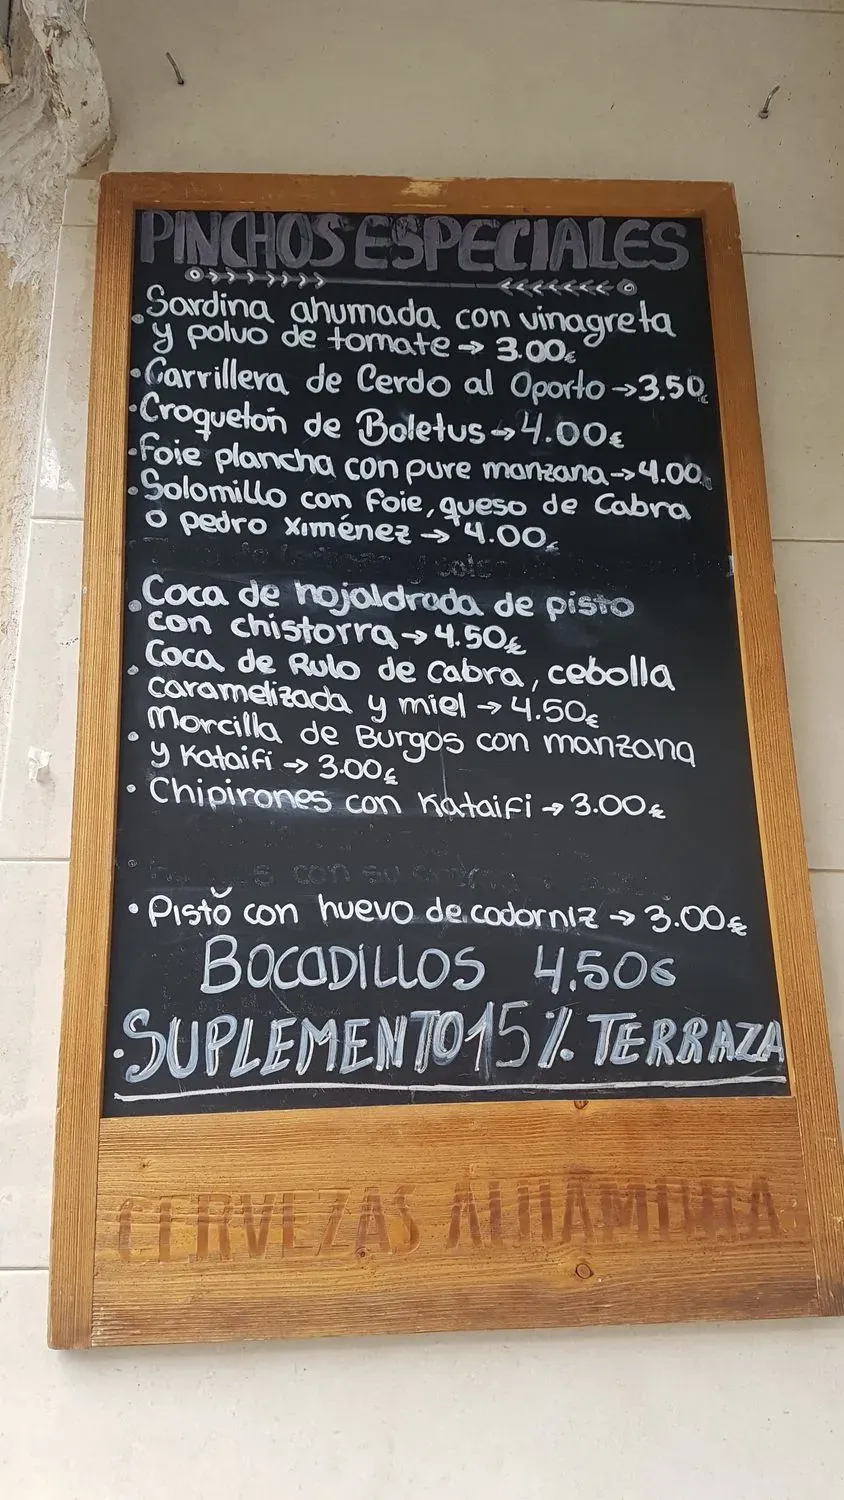 PINCHOS ESPECIALES
• Sardina ahumada con vinagreta
y polvo de tomate → 3.00€
• Carrillera de Cerdo al Oporto → 3.50€
• Croquetón de Boletus → 4.00€
• Foie plancha con pure manzana → 4.00€
• Solomillo con foie, queso de Cabra
o pedro Ximénez → 4.00€
• Coca de hojaldrada de pisto
con chistorra → 4.50€
• Coca de Rulo de Cabra, cebolla
caramelizada y miel → 4.50€
• Morcilla de Burgos con manzana
y Kataifi → 3.00€
• Chipirones con Kataifi → 3.00€
con su
• Pisto con huevo de codorniz → 3.00€
BOCADILLOS 4.50€
• SUPLEMENTO 15% TERRAZA
CERVEZAS ALHAMBRA